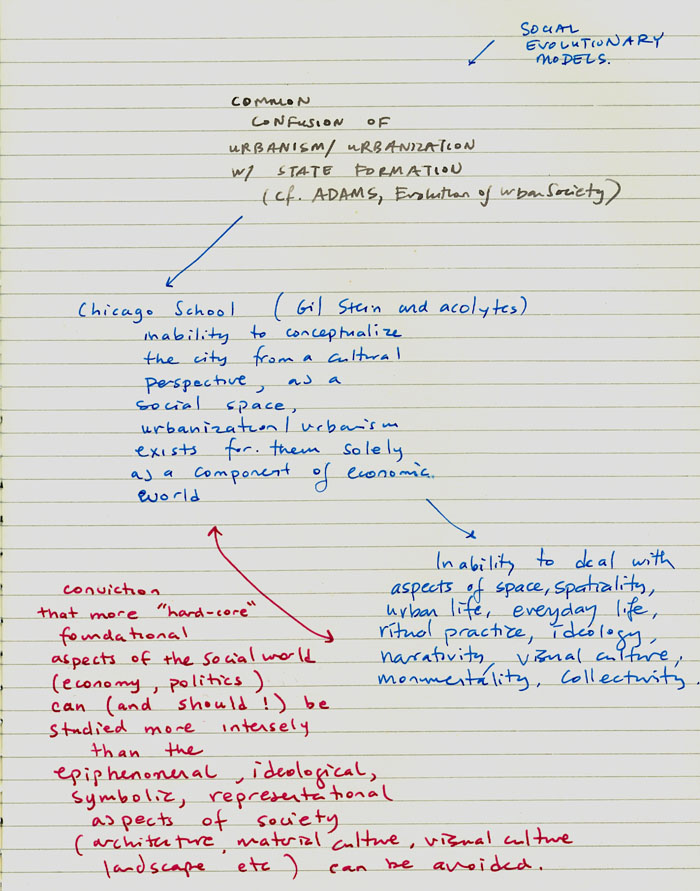 SOCIAL
EVOLUTIONARY
MODELS.
COMMON
CONFUSION OF
URBANISM/ URBANIZATION
W/ STATE FORMATION
(cf. ADAMS, Evolution of urban Society)
Chicago School (Gil Stein and acolytes)
inability to conceptualize
the city from a cultural
perspective, as a
social space,
urbanization/urbanism
exists for them solely
as a component of economic
world
Inability to deal with
aspects of space, spatiality,
urban life, everyday life,
ritual practice, ideology,
narrativity, visual culture,
monumentality, collectivity.
conviction
that more "hard-core"
foundational
aspects of the social world
(economy, politics)
can (and should!) be
studied more intensely
than the
epiphenomenal, ideological,
symbolic, representational
aspects of society
(architecture, material culture, visual culture
landscape etc) can be avoided.